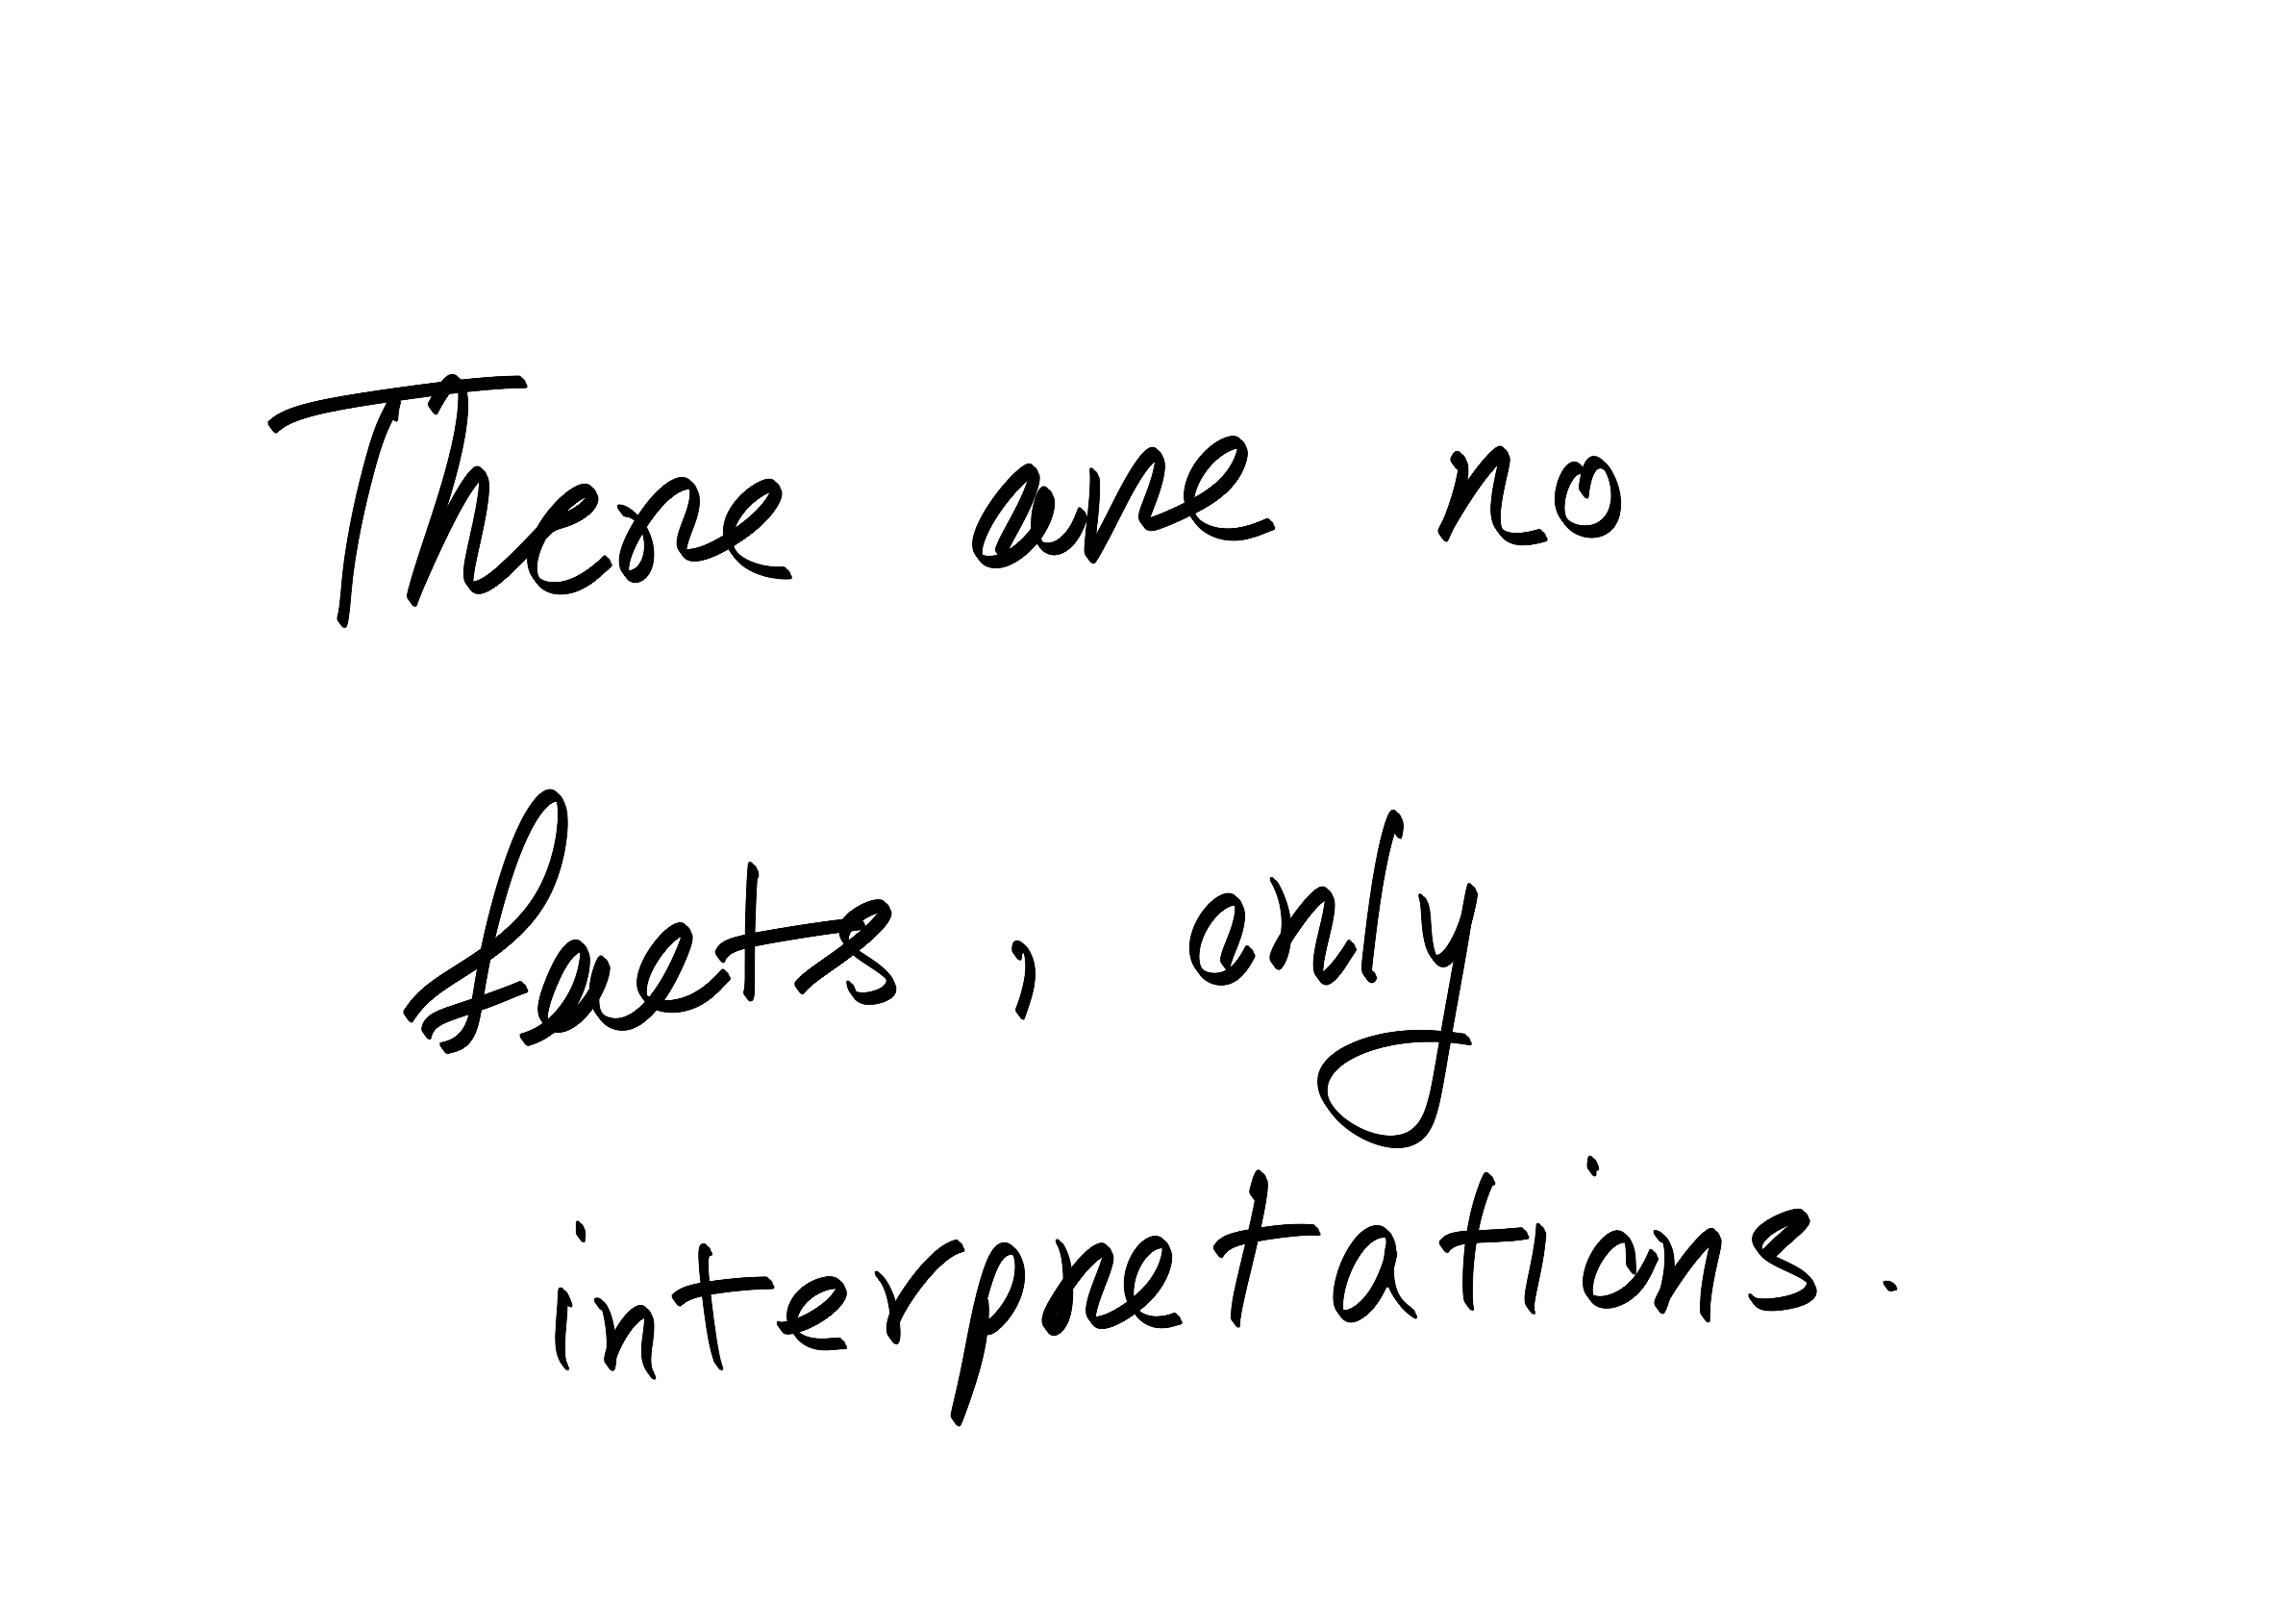 There are no
facts, only
interpretations.